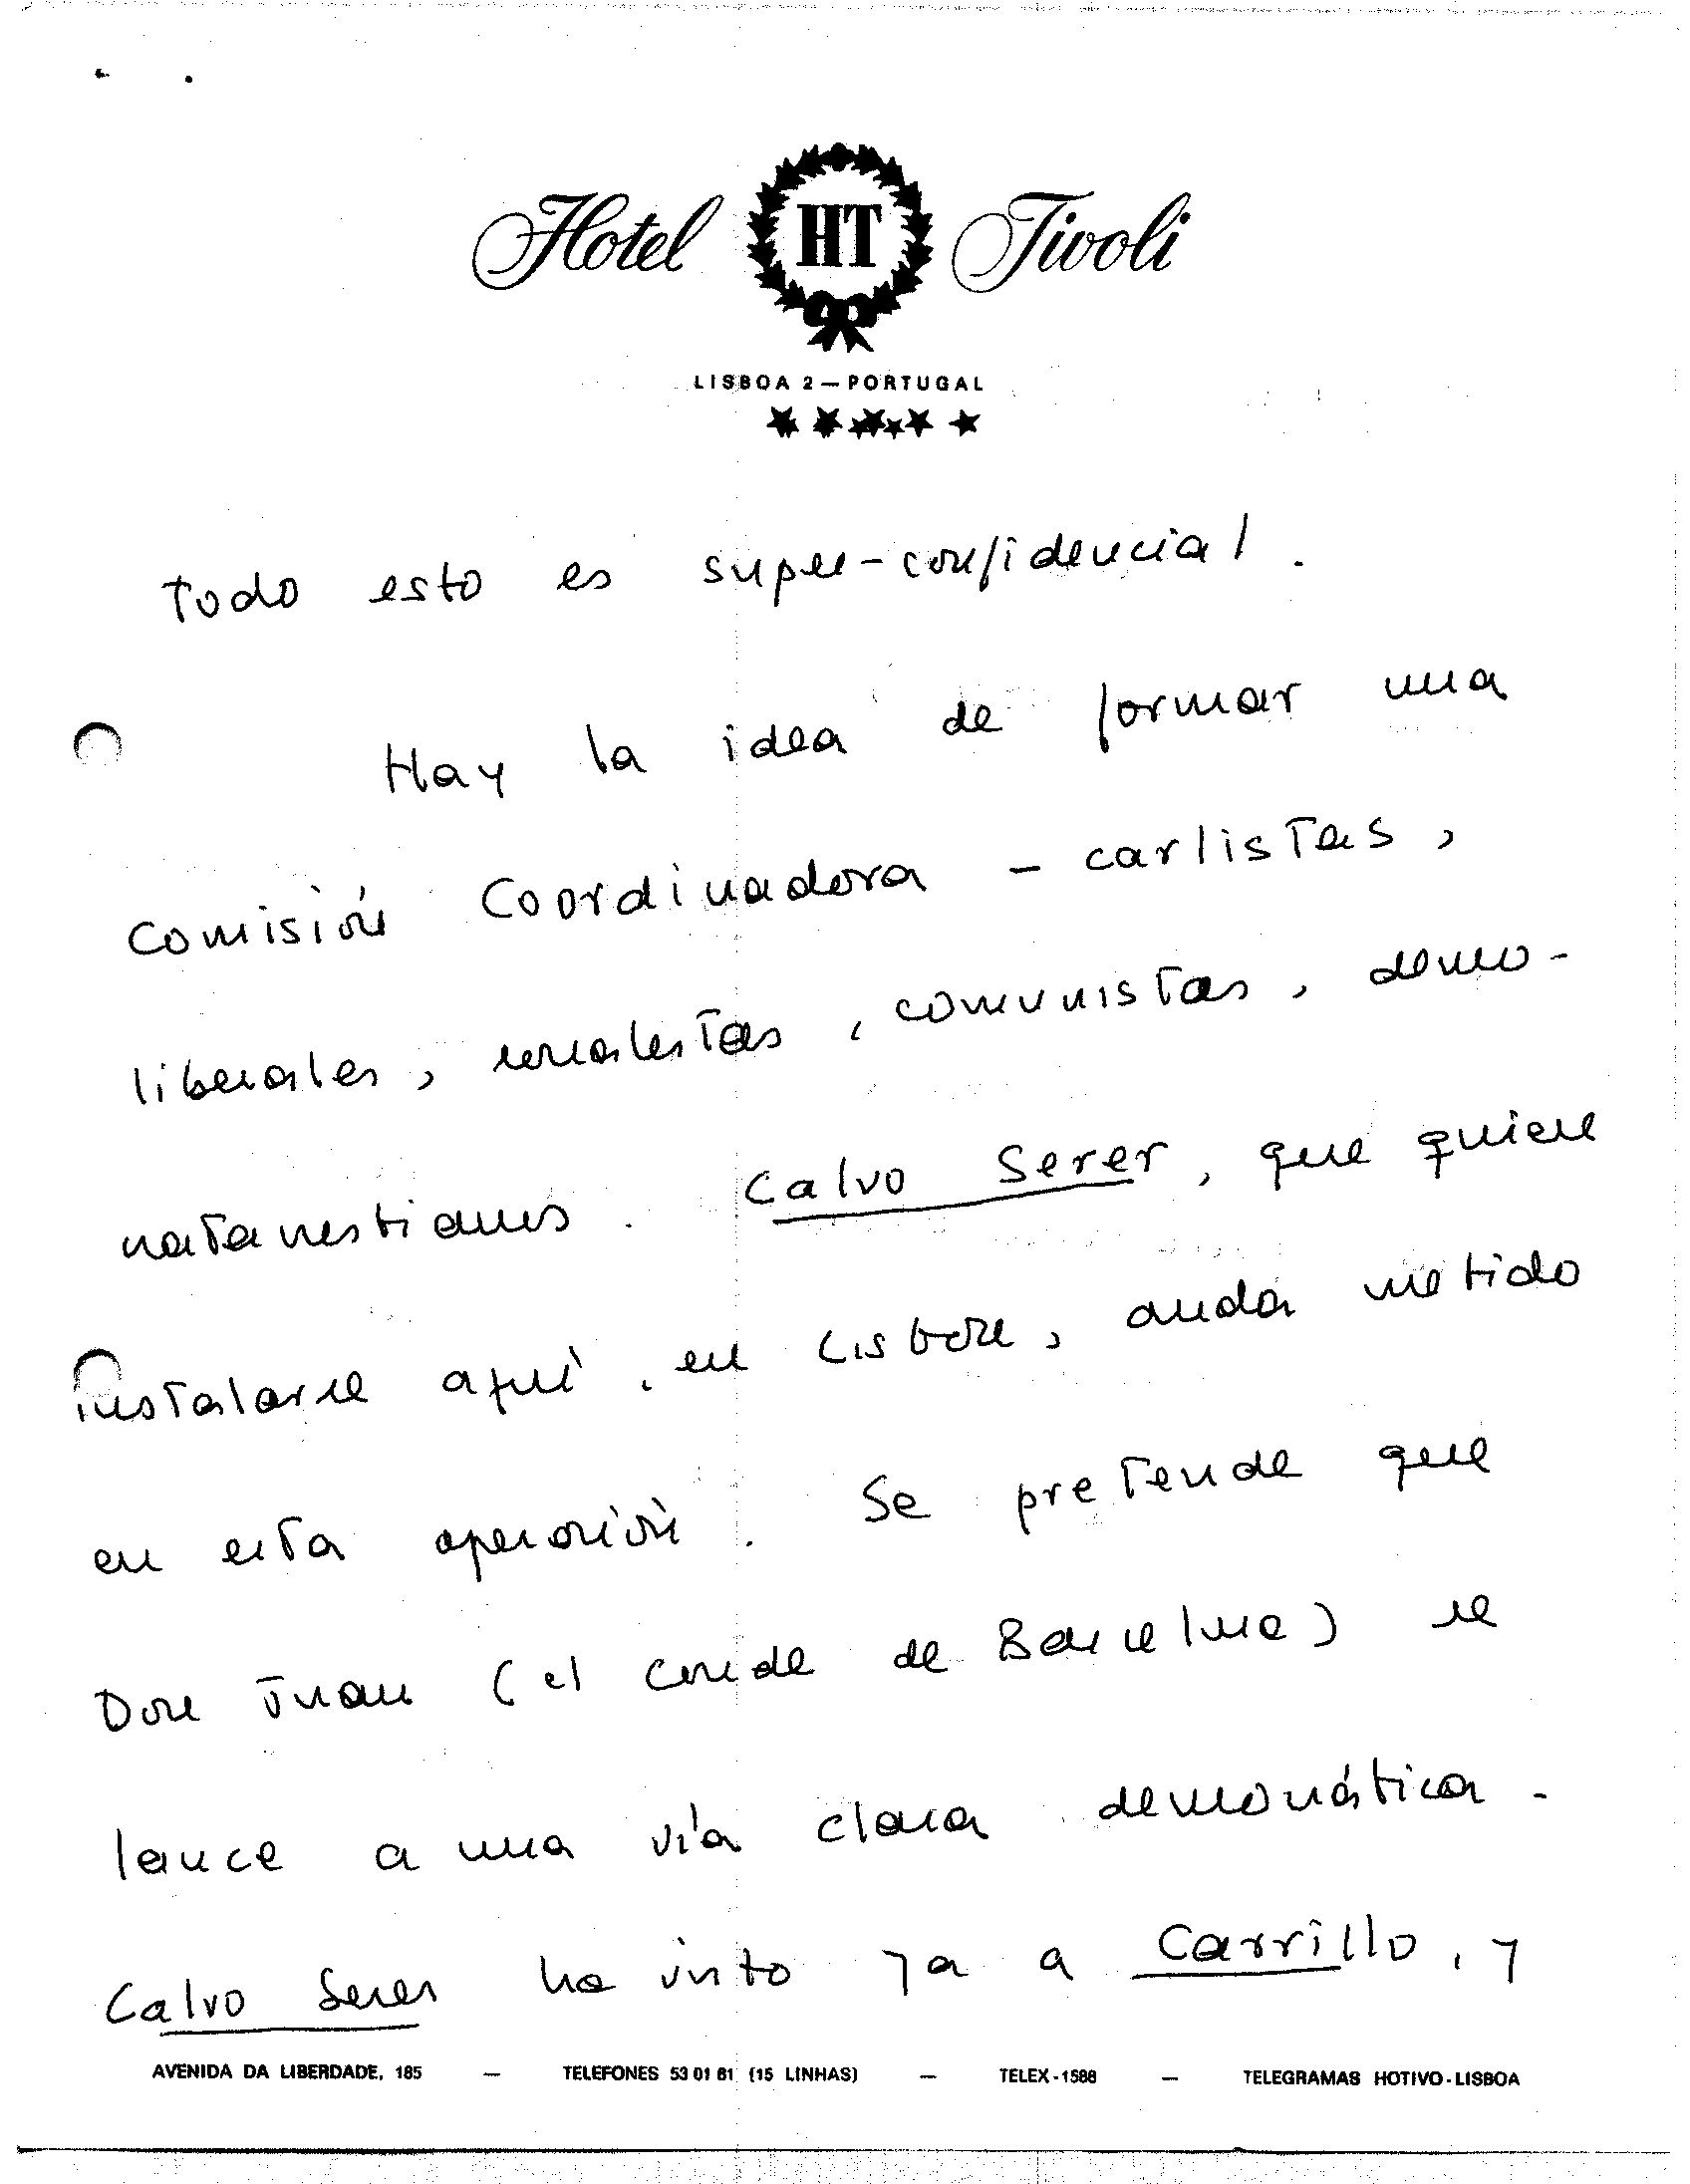 Hotel HT Tivoli
LISBOA 2 — PORTUGAL
Todo esto es super-confidencial.
Hay la idea de formar una
Comisión Coordinadora - carlistas,
liberales, socialistas, comunistas, demo-
cratacristianos. Calvo Serer, que quiere
instalarse aquí, en Lisboa, anda metido
en esta operación. Se pretende que
Don Juan (el conde de Barcelona) se
lance a una vía clara democrática.
Calvo Serer ha visto ya a Carrillo, y
AVENIDA DA LIBERDADE, 185 — TELEFONES 53 01 81 (15 LINHAS) — TELEX - 1588 — TELEGRAMAS HOTIVO - LISBOA